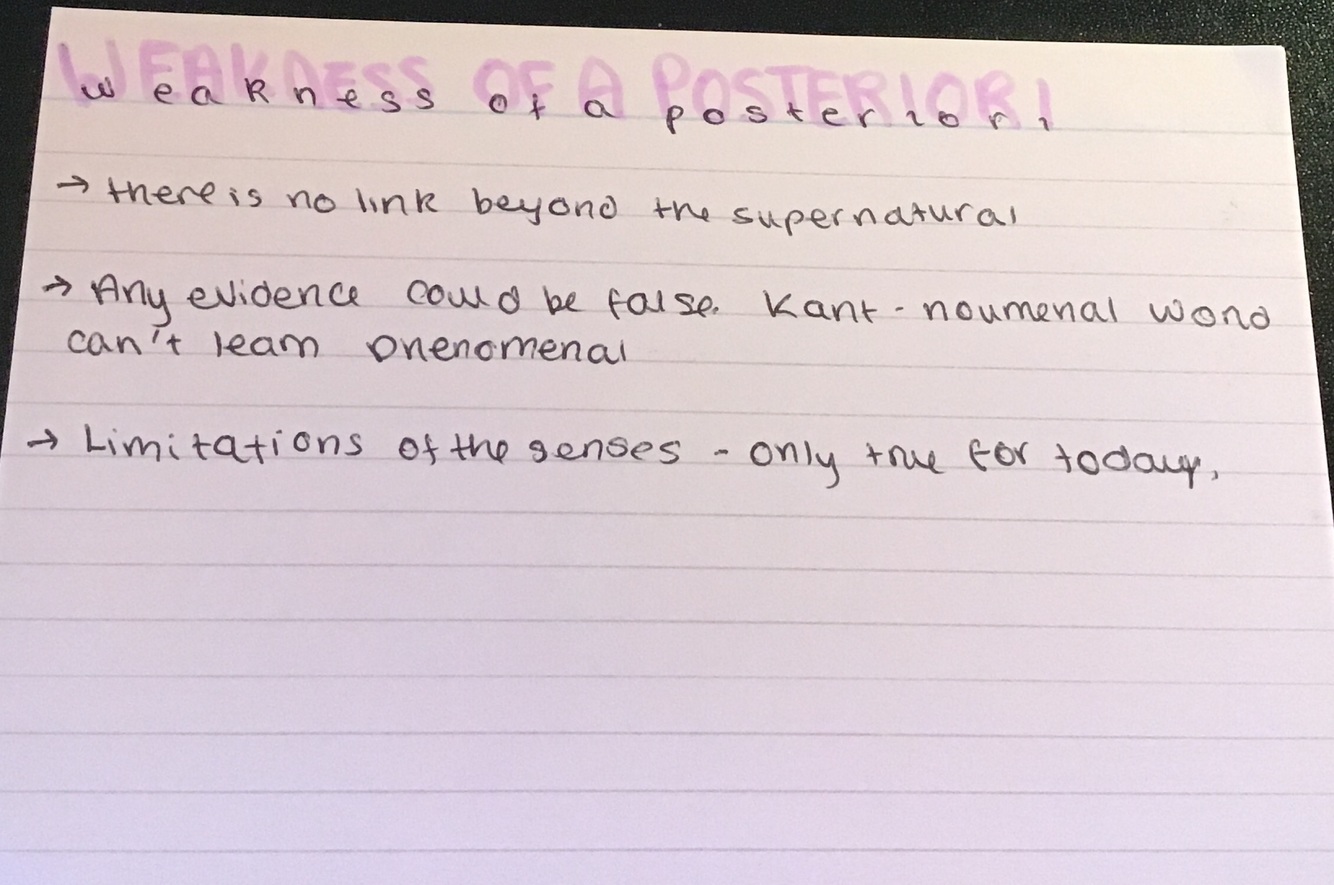 WEAKNESS OF A POSTERIORI
weakness of a posteriori
→ there is no link beyond the supernatural
→ Any evidence could be false. Kant - noumenal world
can't learn phenomenal
→ Limitations of the senses - only true for today.